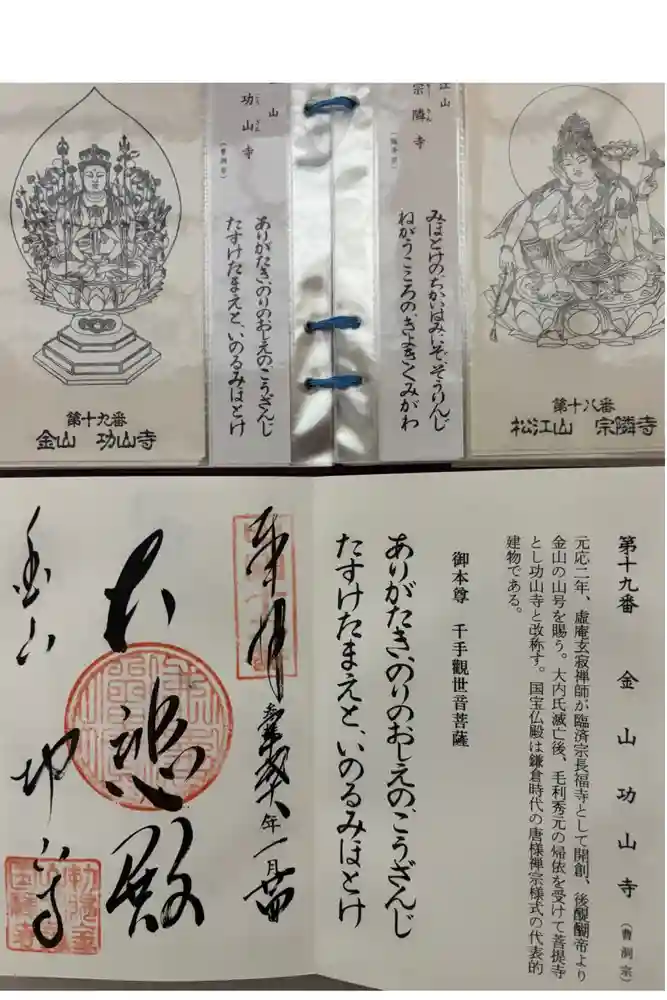 江山
宗隣寺
みほとけのちかいはみにぞそうりんじ
ねがうこころのきよきくみがわ
第十八番
松江山 宗隣寺
山
功山寺
(曹洞宗)
ありがたきのりのおしえのこうざんじ
たすけたまえといのるみほとけ
第十九番
金山 功山寺
第十九番 金山功山寺(曹洞宗)
元応二年、虚庵玄寂禅師が臨済宗長福寺として開創、後醍醐帝より
金山の山号を賜う。大内氏滅亡後、毛利秀元の帰依を受けて菩提寺
とし功山寺と改称す。国宝仏殿は鎌倉時代の唐様禅宗様式の代表的
建物である。
御本尊 千手觀世音菩薩
ありがたき、のりのおしえのこうざんじ
たすけたまえと、いのるみほとけ
奉拝
年一月
大悲殿
金山
功山寺